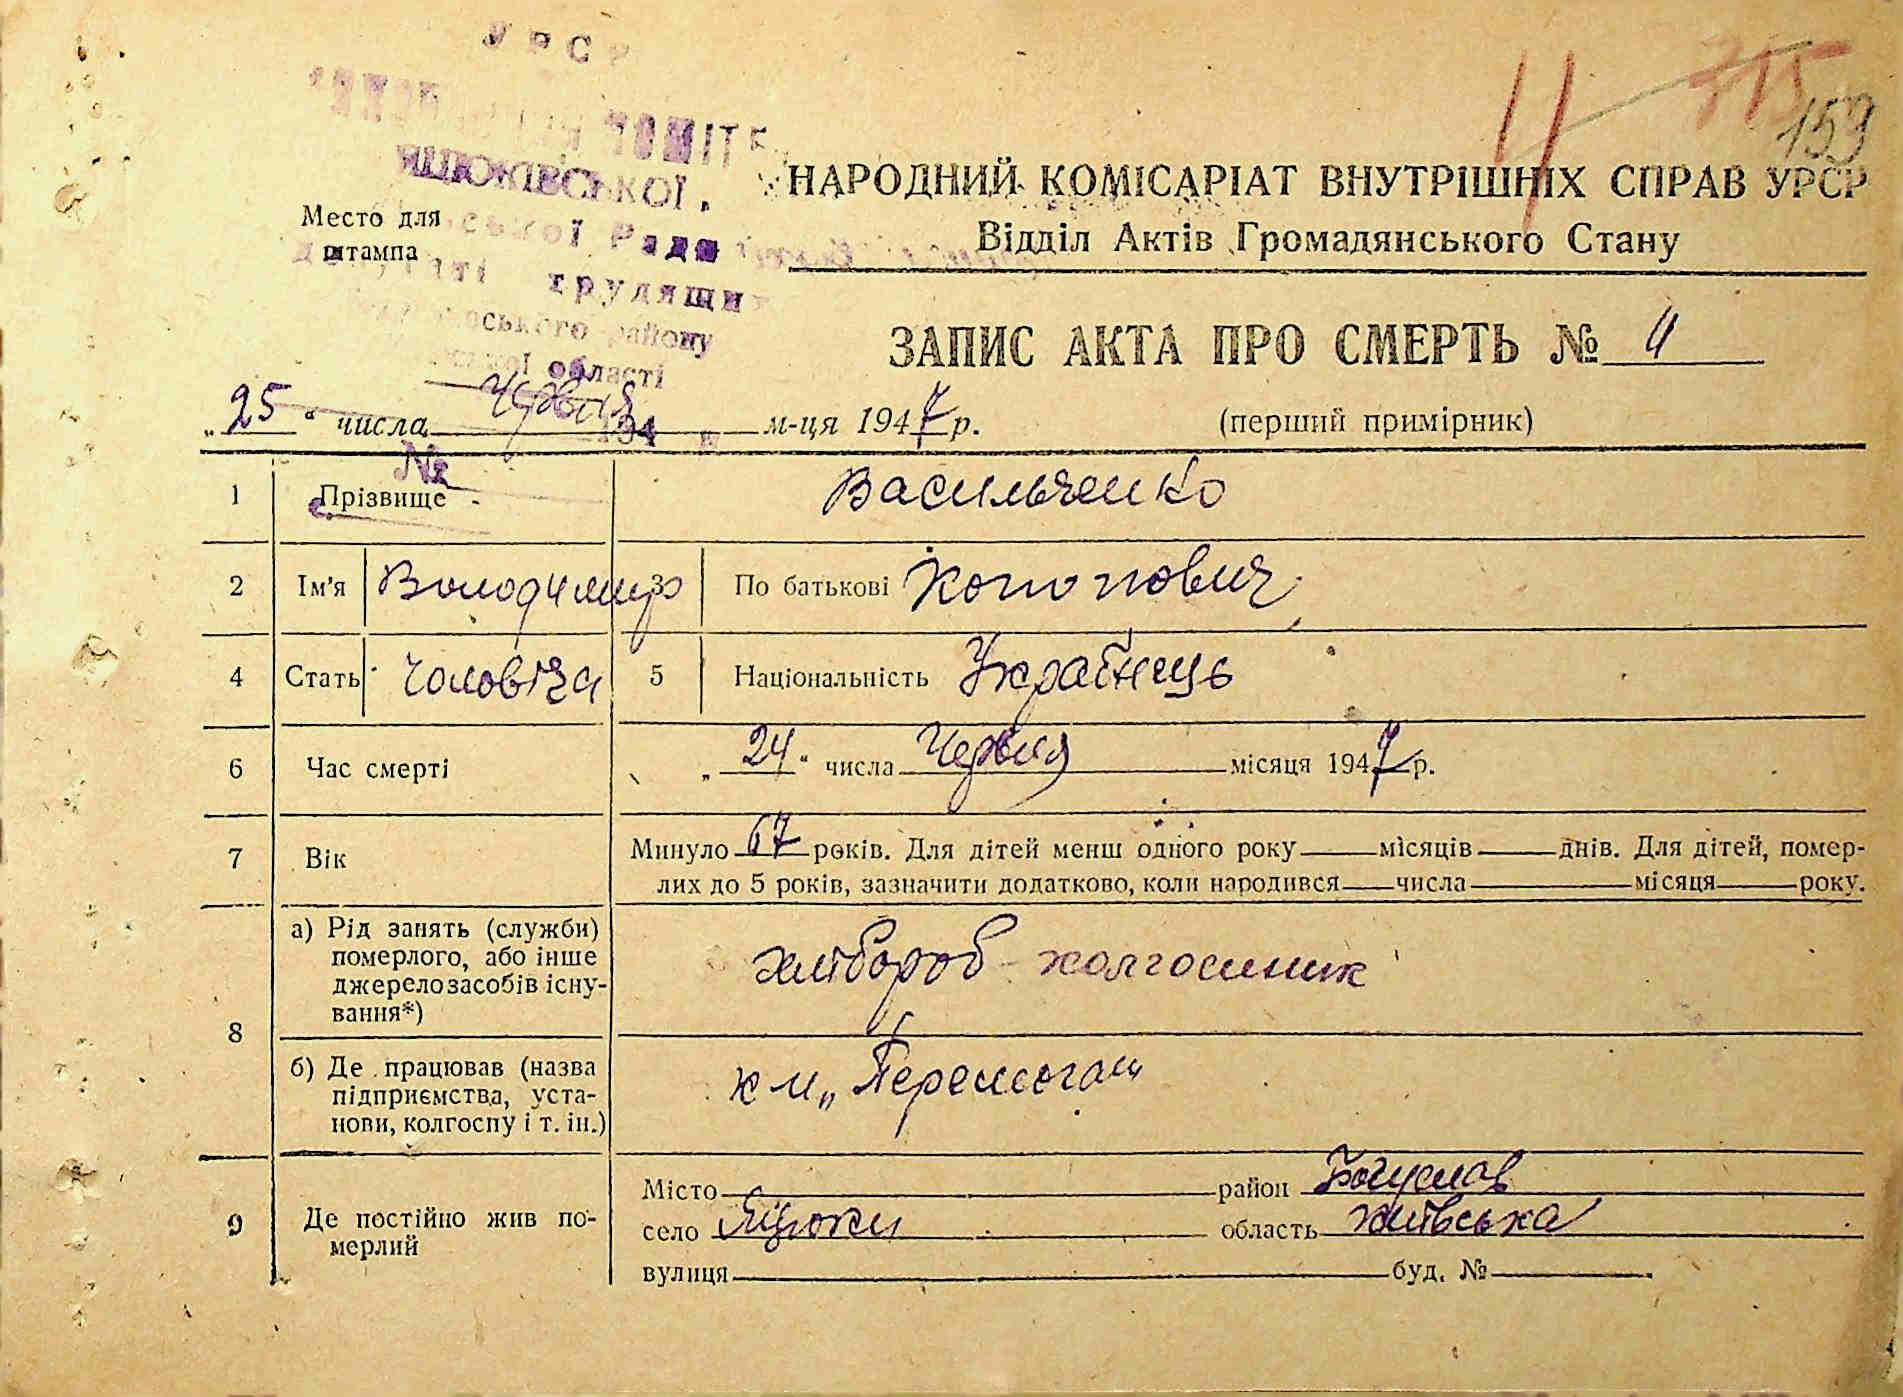 УРСР
11 715
159
ЯЦЮКІВСЬКОЇ
Место для
штампа
Ради
трудящих
району
області
НАРОДНИЙ КОМІСАРІАТ ВНУТРІШНІХ СПРАВ УРСР
Відділ Актів Громадянського Стану
ЗАПИС АКТА ПРО СМЕРТЬ № 11
„25“ числа Червня м-ця 1947 р. (перший примірник)
194
№
1 Прізвище Васильченко
2 Ім'я Володимир 3 По батькові Кононович
4 Стать чоловіча 5 Національність Українець
6 Час смерті „24“ числа Червня місяця 1947 р.
7 Вік Минуло 67 років. Для дітей менш одного року місяців днів. Для дітей, помер-
лих до 5 років, зазначити додатково, коли народився числа місяця року.
8 а) Рід занять (служби)
померлого, або інше
джерело засобів існу-
вання*)
хлібороб-колгоспник
б) Де працював (назва
підприємства, уста-
нови, колгоспу і т. ін.)
к м „Перемога“
9 Де постійно жив по-
мерлий
Місто район Богуслав
село Яцюки область Київська
вулиця буд. №